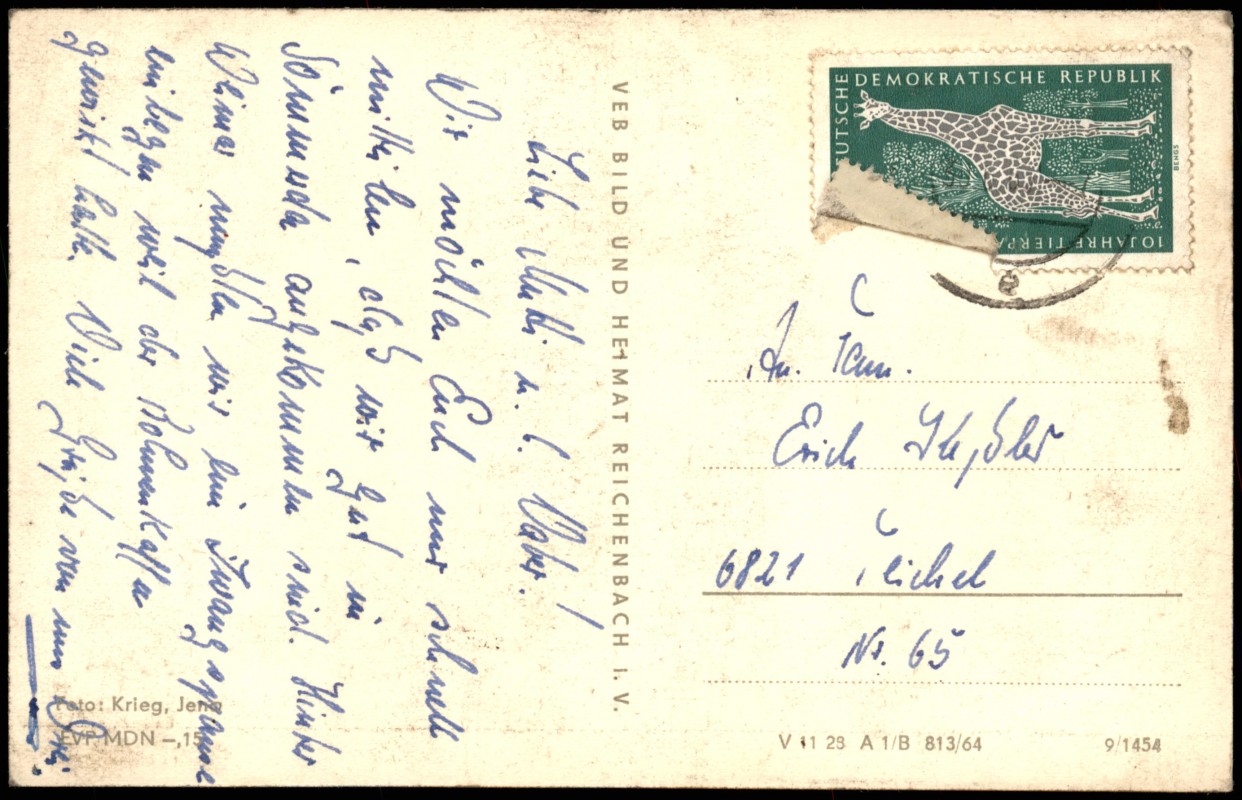 Liebe Mutti u. l. Vater!
Wir möchten Euch nur schnell
mitteilen, daß wir gut in
Sömmerda angekommen sind. Hinter
Weimar mußten wir eine Zwangspause
einlegen weil der Bohnenkaffee
gewirkt hatte. Viele Grüße von uns
VEB BILD UND HEIMAT REICHENBACH I. V.
Foto: Krieg, Jena
EVP MDN –,15
DEUTSCHE DEMOKRATISCHE REPUBLIK
10 JAHRE TIERPA
BENGS
An. Fam.
Erich
6821 Teichel
Nr. 65
V 11 28 A 1/B 813/64
9/1454